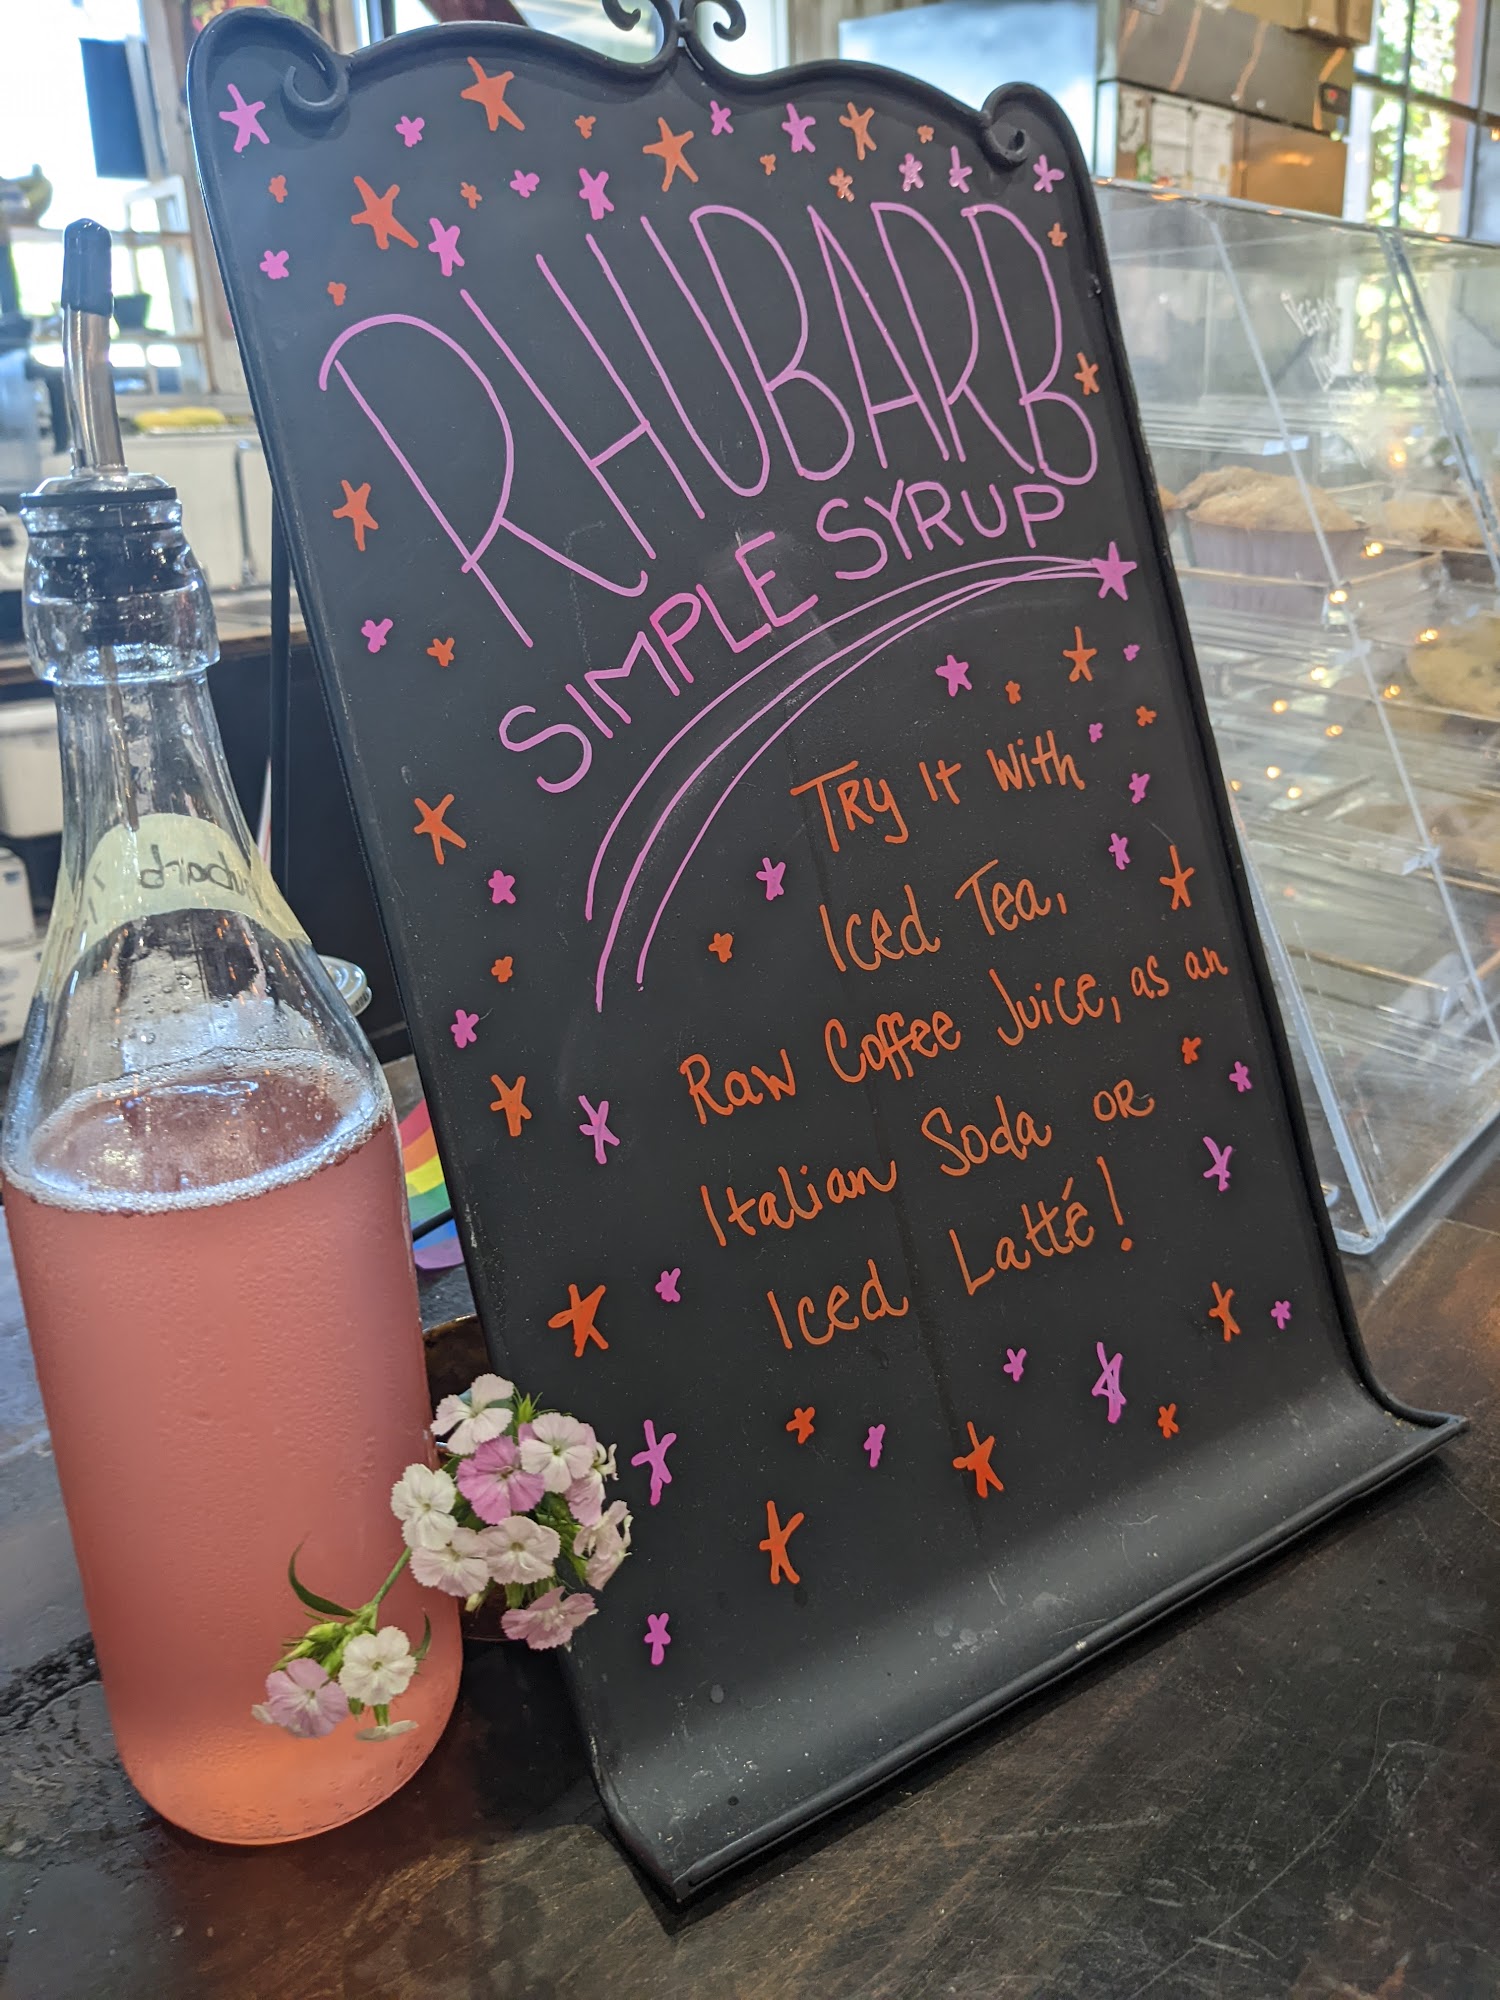 RHUBARB
SIMPLE SYRUP
Try it with
Iced Tea,
Raw Coffee Juice, as an
Italian Soda or
Iced Latté!